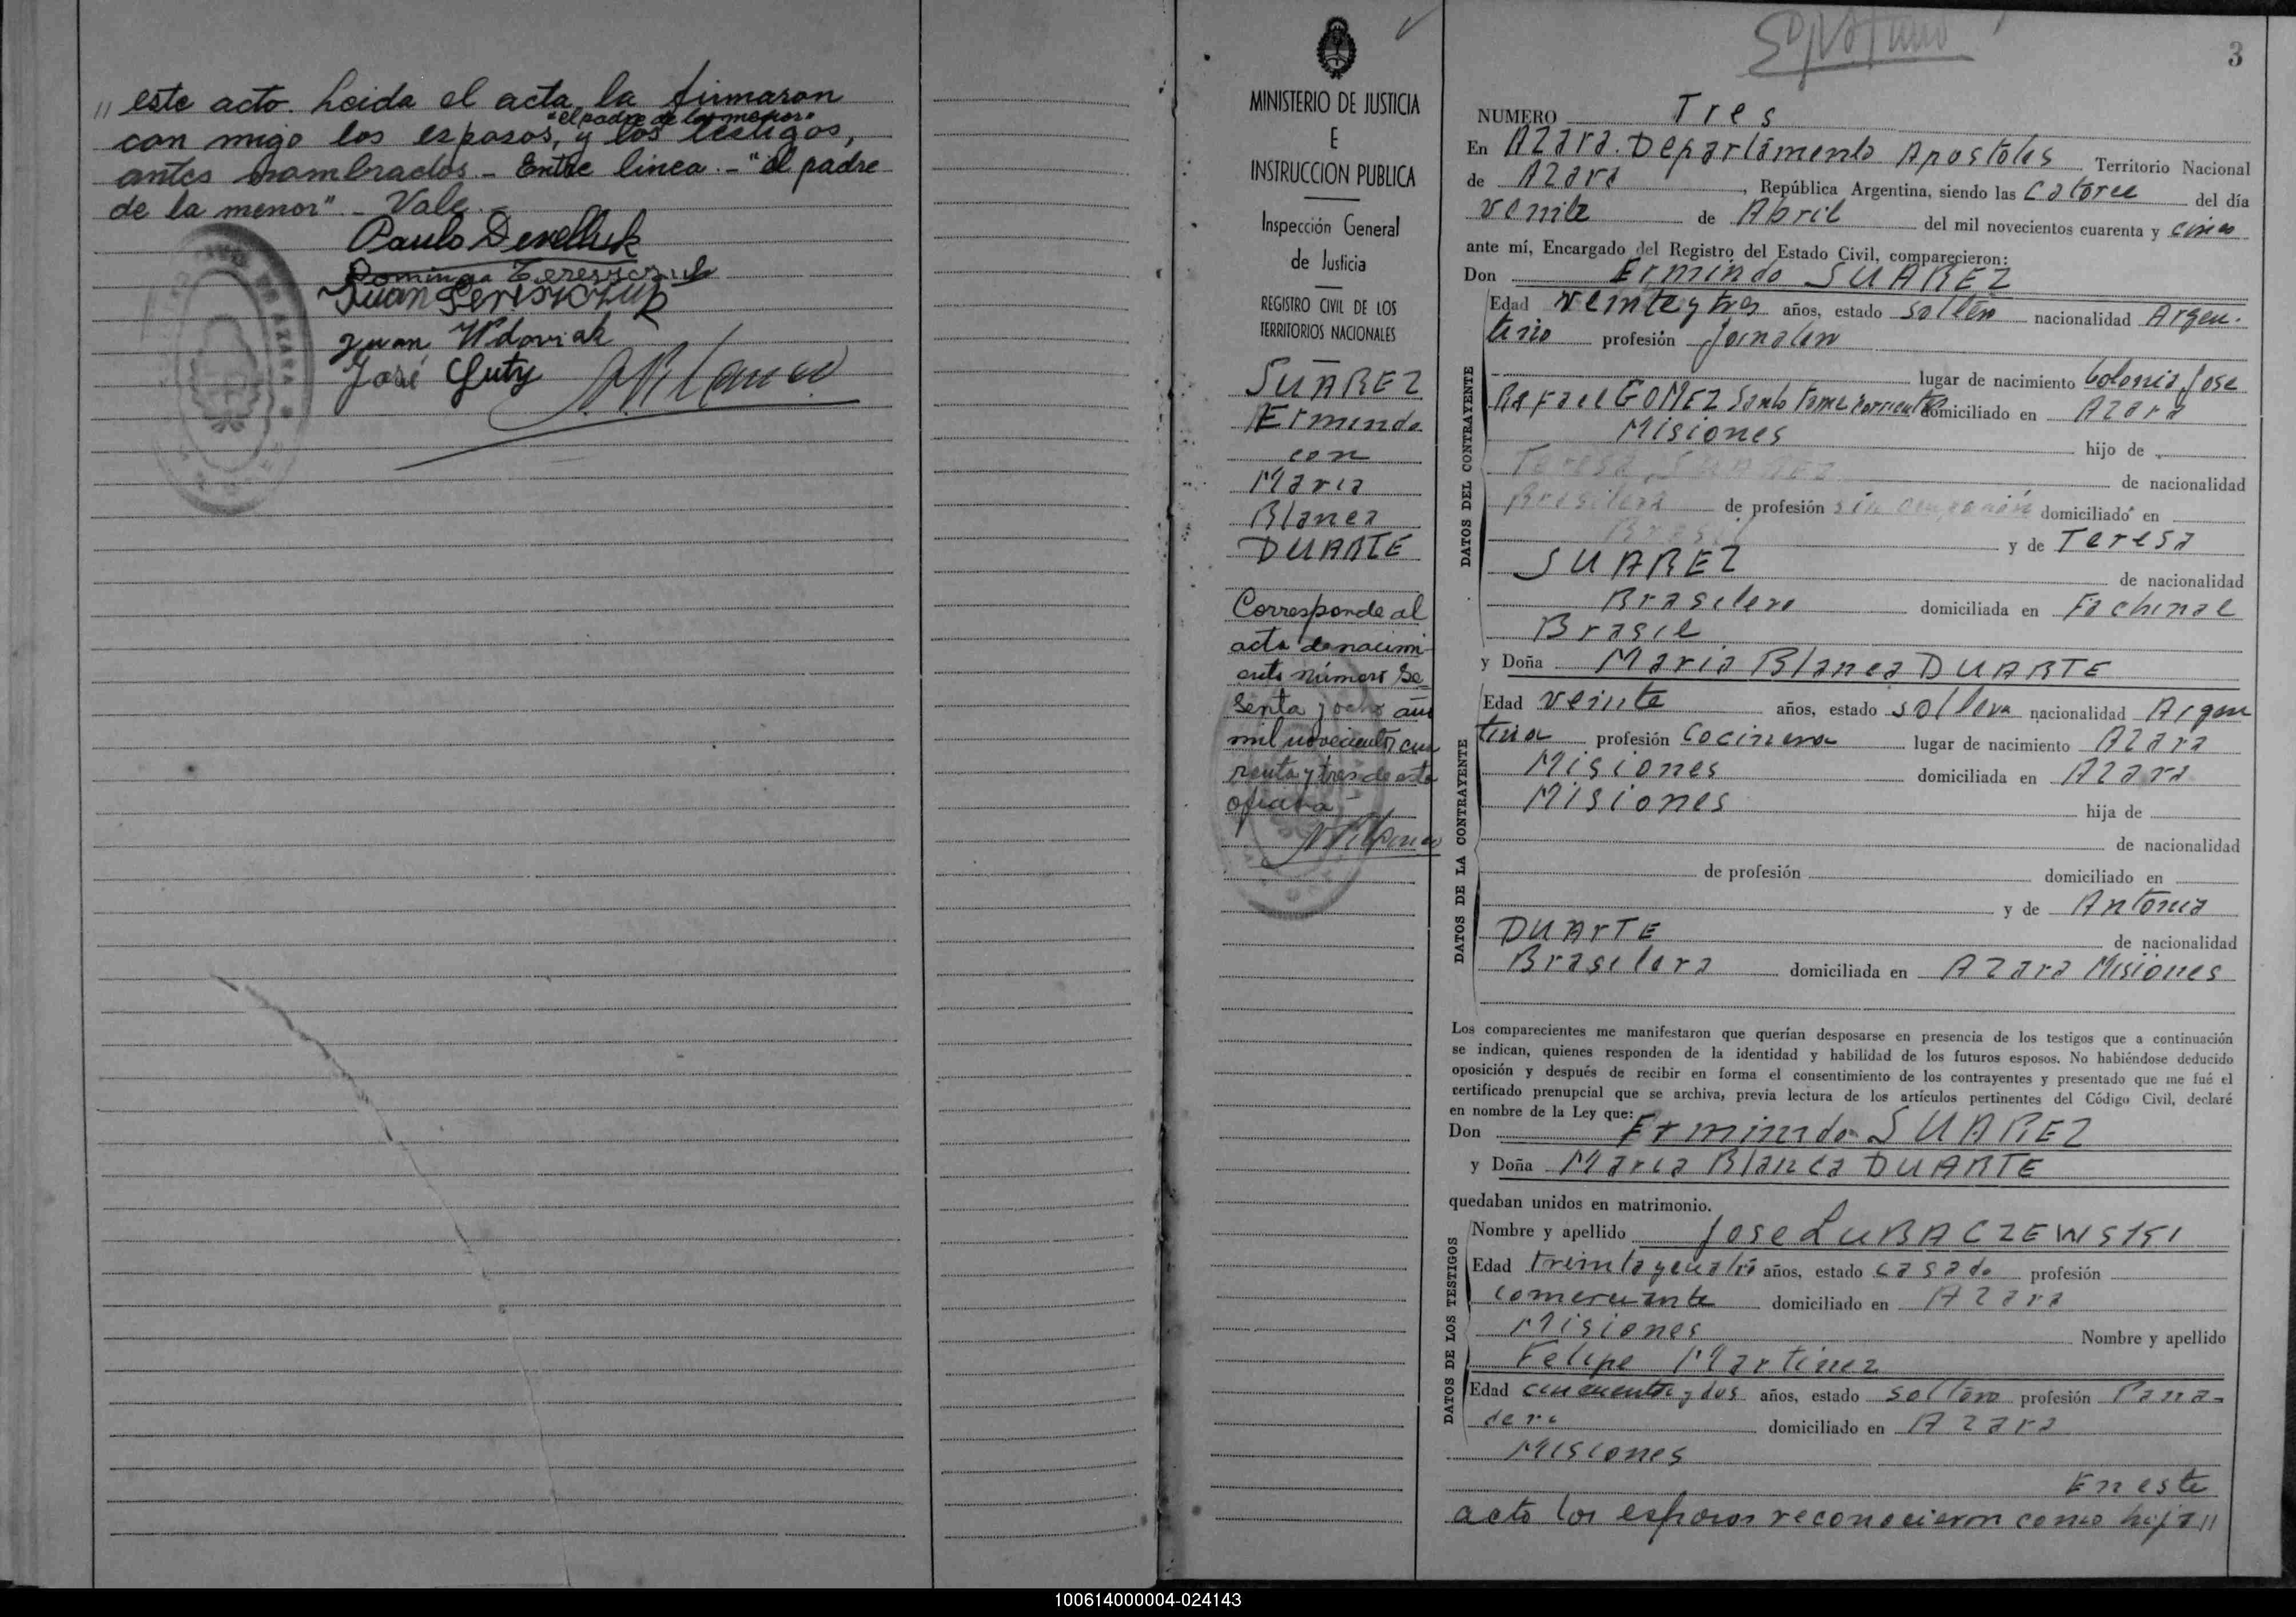 " este acto. Leida el acta, la firmaron
"el padre de la menor"
con migo los esposos, y los testigos,
antes nombrados. - Entre linea. - "el padre
de la menor" - Vale -
Paulo
Domingo
Juan
Juan Wdoviak
José Guty
MINISTERIO DE JUSTICIA
E
INSTRUCCION PUBLICA
Inspección General
de Justicia
REGISTRO CIVIL DE LOS
TERRITORIOS NACIONALES
SUAREZ
Ermindo
con
Maria
Blanca
DUARTE
Corresponde al
acta de nacimi-
ento número Se-
senta y ocho año
mil novecientos cua
renta y tres de esta
oficina -
3
NUMERO Tres
En Azara. Departamento Apostoles Territorio Nacional
de Azara, República Argentina, siendo las Catorce del día
veinte de Abril del mil novecientos cuarenta y cinco
ante mí, Encargado del Registro del Estado Civil, comparecieron:
Don Ermindo SUAREZ
DATOS DEL CONTRAYENTE
Edad veinte y tres años, estado soltero nacionalidad Argen-
tino profesión Jornalero
lugar de nacimiento Colonia Jose
Rafael GOMEZ Santo Tome Corrientes domiciliado en Azara
Misiones hijo de
Teresa SUAREZ de nacionalidad
Brasilera de profesión sin ocupación domiciliado en
Brasil y de Teresa
SUAREZ de nacionalidad
Brasilera domiciliada en Fachinal
Brasil
y Doña Maria Blanca DUARTE
DATOS DE LA CONTRAYENTE
Edad veinte años, estado soltera nacionalidad Argen
tina profesión Cocinera lugar de nacimiento Azara
Misiones domiciliada en Azara
Misiones hija de
de nacionalidad
de profesión domiciliado en
y de Antonia
DUARTE de nacionalidad
Brasilera domiciliada en Azara Misiones
Los comparecientes me manifestaron que querían desposarse en presencia de los testigos que a continuación
se indican, quienes responden de la identidad y habilidad de los futuros esposos. No habiéndose deducido
oposición y después de recibir en forma el consentimiento de los contrayentes y presentado que me fué el
certificado prenupcial que se archiva, previa lectura de los artículos pertinentes del Código Civil, declaré
en nombre de la Ley que:
Don Ermindo SUAREZ
y Doña Maria Blanca DUARTE
quedaban unidos en matrimonio.
DATOS DE LOS TESTIGOS
Nombre y apellido Jose LUBACZEWSKI
Edad treinta y cuatro años, estado casado profesión
comerciante domiciliado en Azara
Misiones Nombre y apellido
Felipe Martinez
Edad cincuenta y dos años, estado soltero profesión Pana-
dero domiciliado en Azara
Misiones
En este
acto los esposos reconocieron como hija "
100614000004-024143